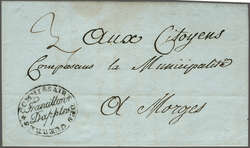 3
aux Citoyens
Composans la Municipalité
A Morges
COMMISSAIRE DES GUERRES
Dapples